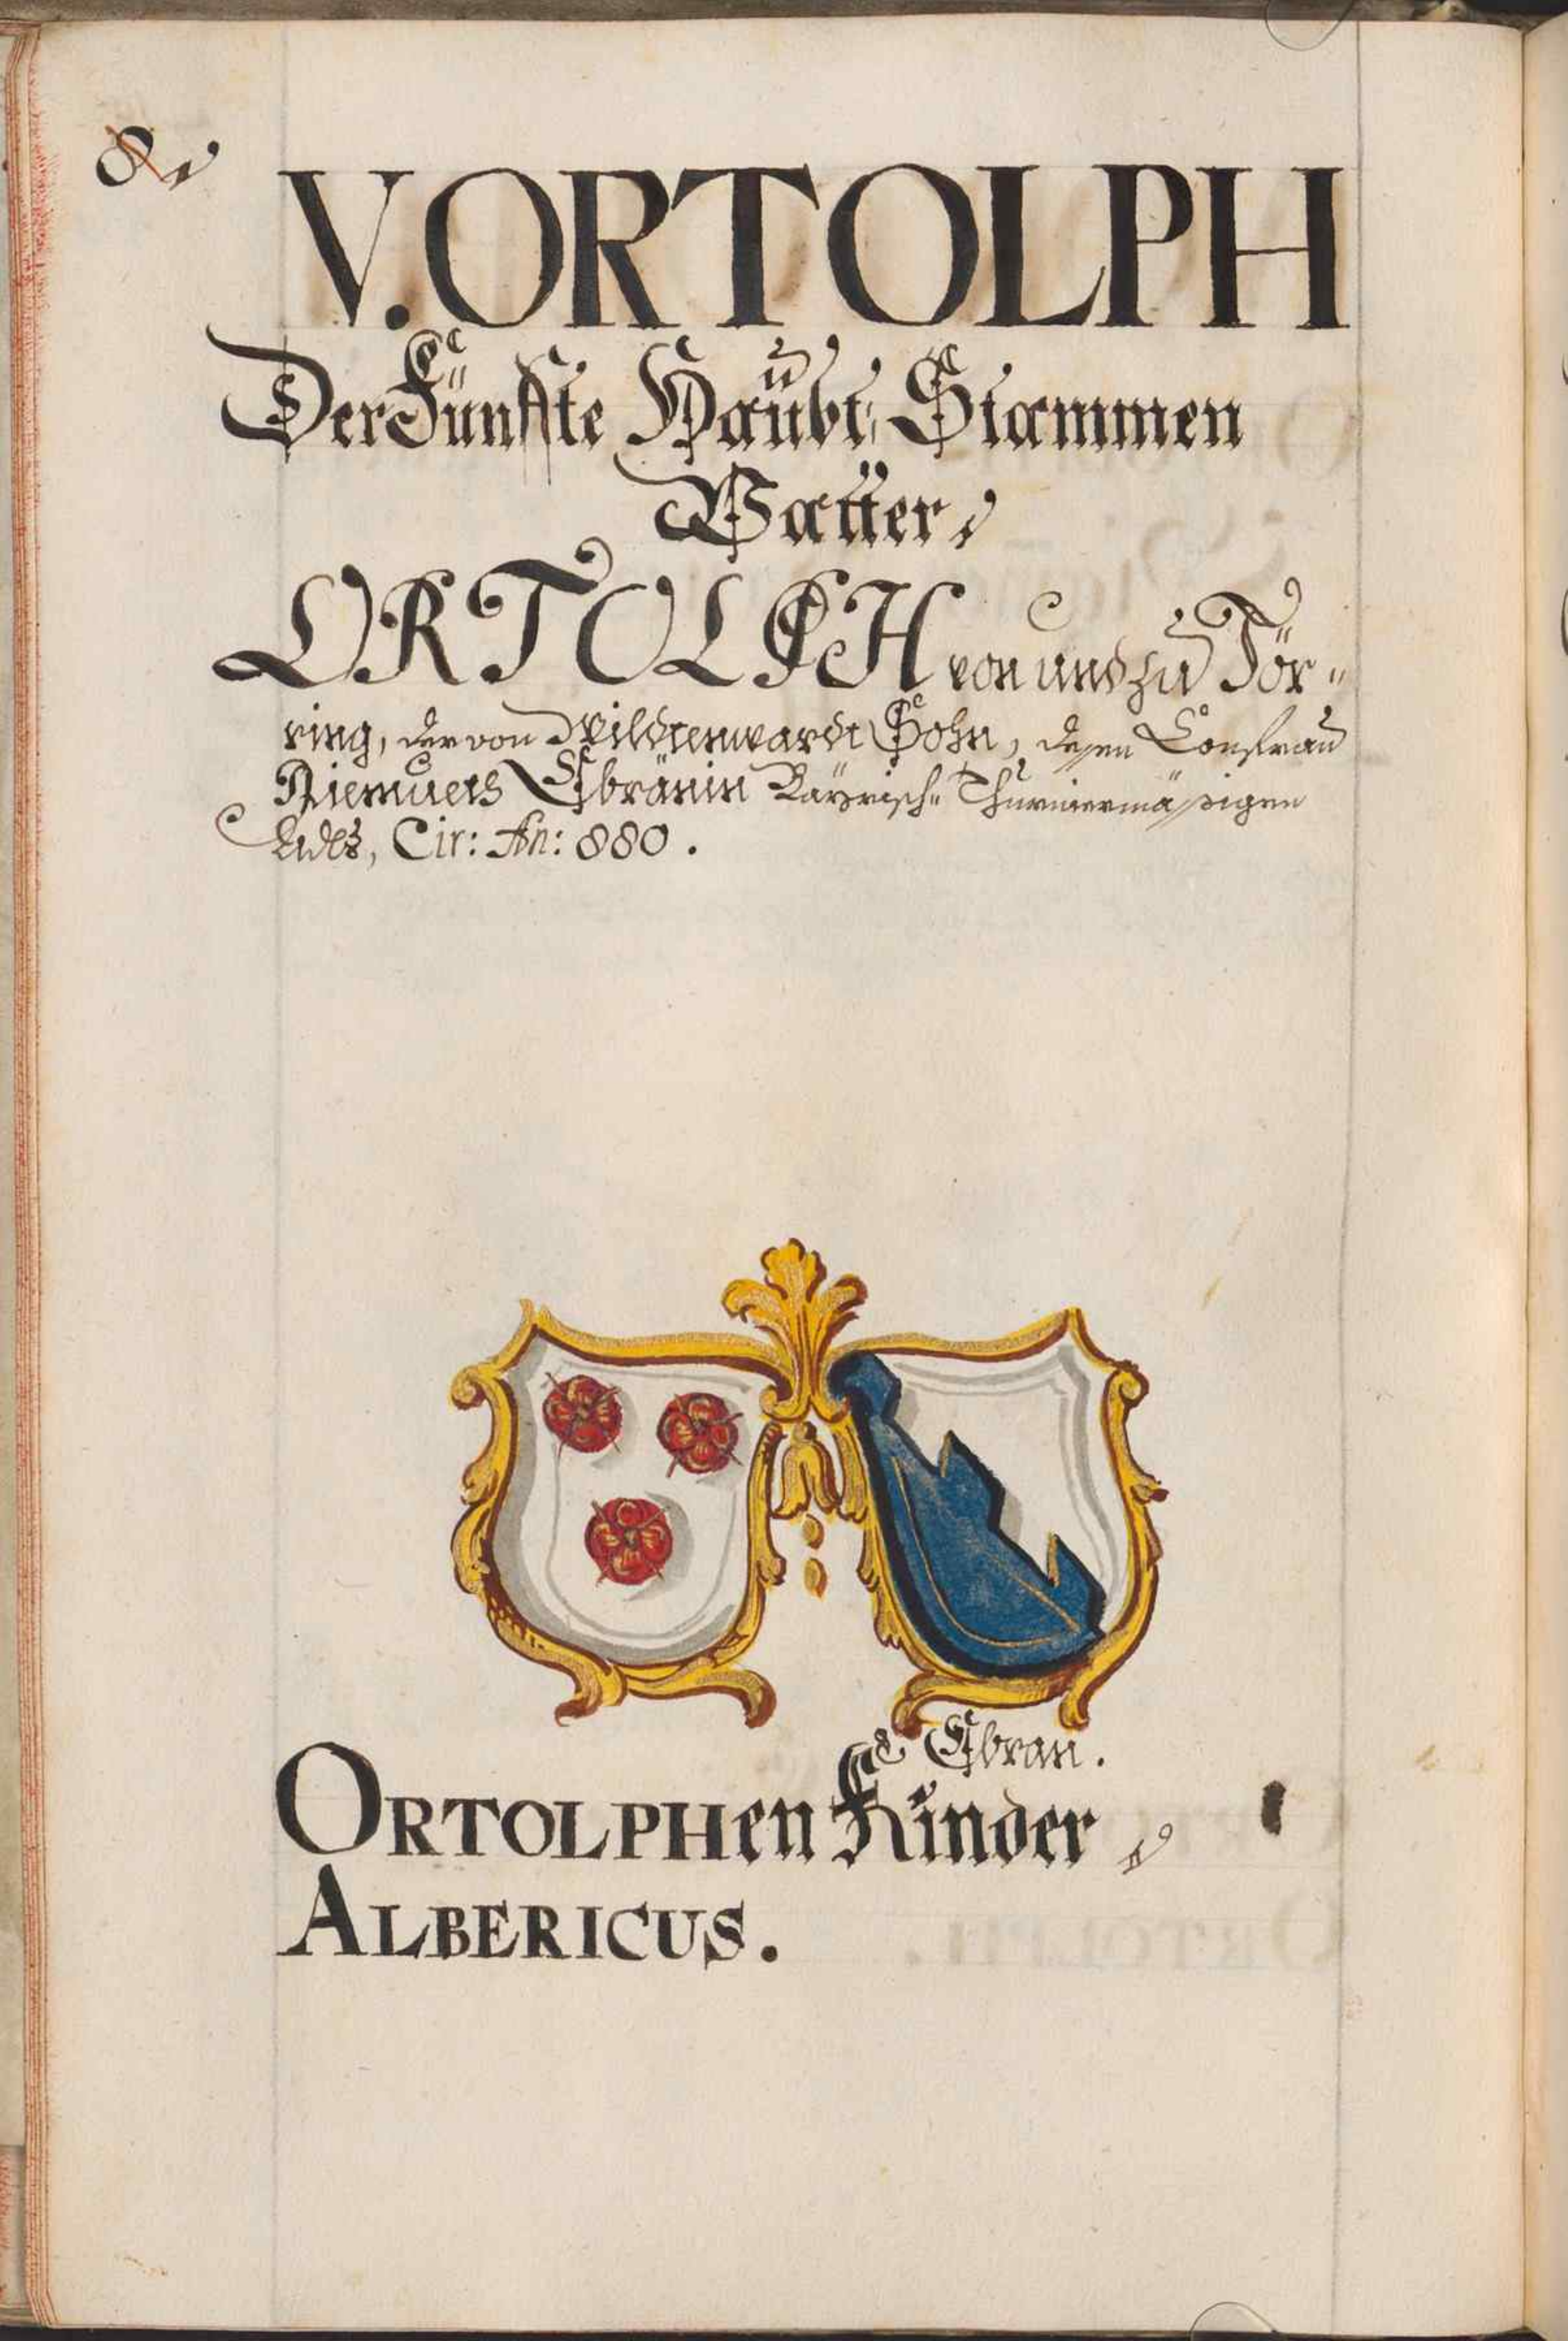 8.
V. ORTOLPH
Der Fünffte Haübt Stammen
Vatter,
ORTOLPH von und zu Tör-
ring, der von Wildtenwardt Sohn, dessen Consfrau
Diemuets Ebränin Bayrisch- Thurniermässigen
Adels, Cir: An: 880.
Ebran.
ORTOLPHen Kinder,
ALBERICUS.